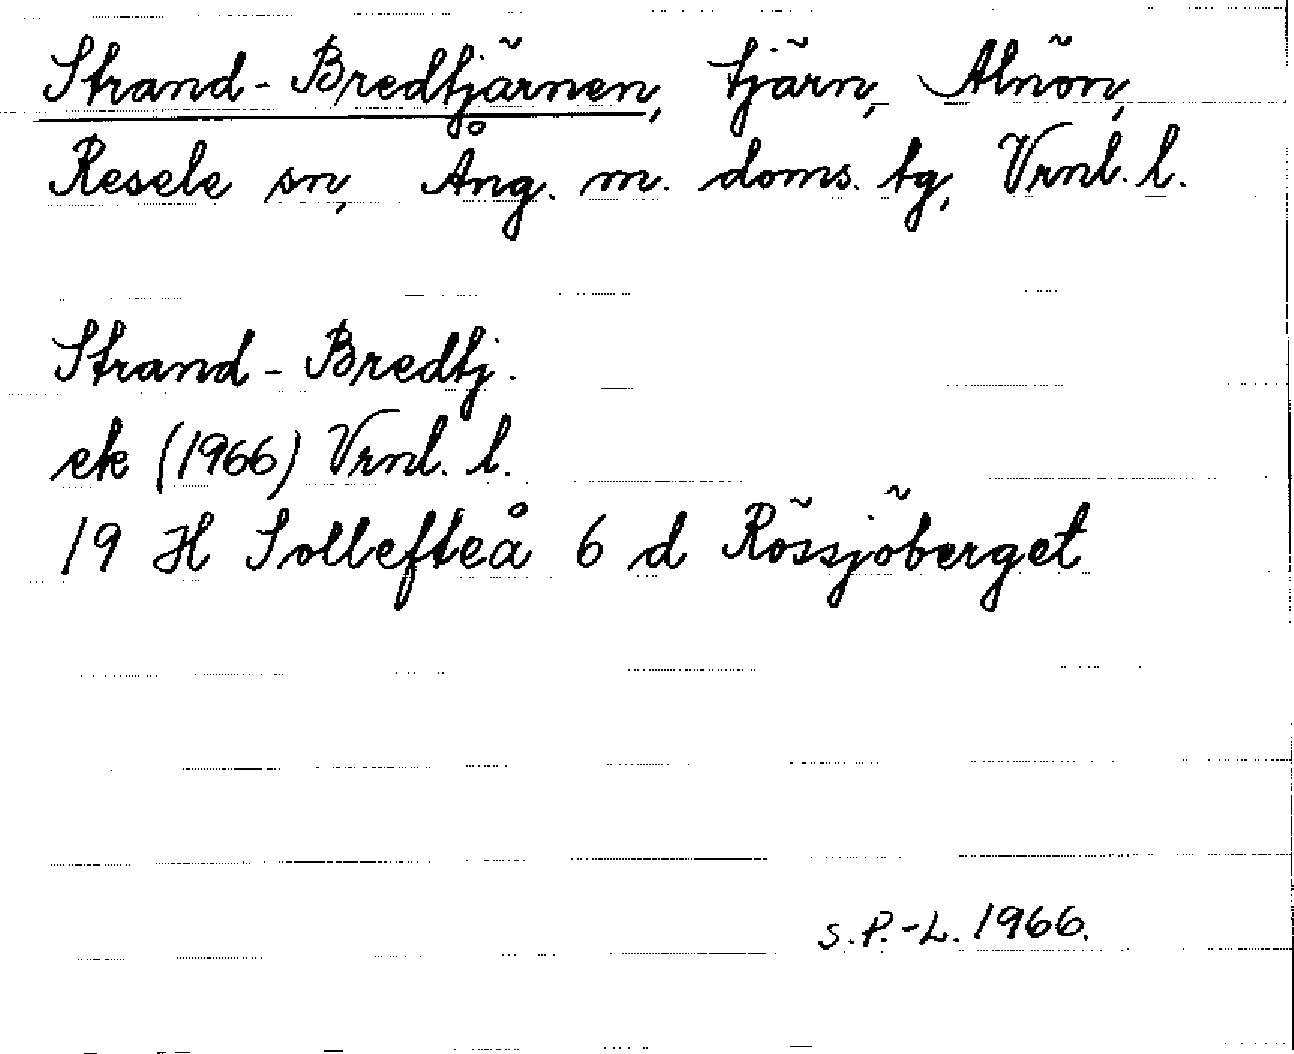 Strand-Bredtjärnen, tjärn, Alnön,
Resele sn, Ång. m. doms. tg, Vrnl. l.
Strand-Bredtj.
ek (1966) Vrnl. l.
19 H Sollefteå 6 d Rössjöberget
S.P.-L. 1966.